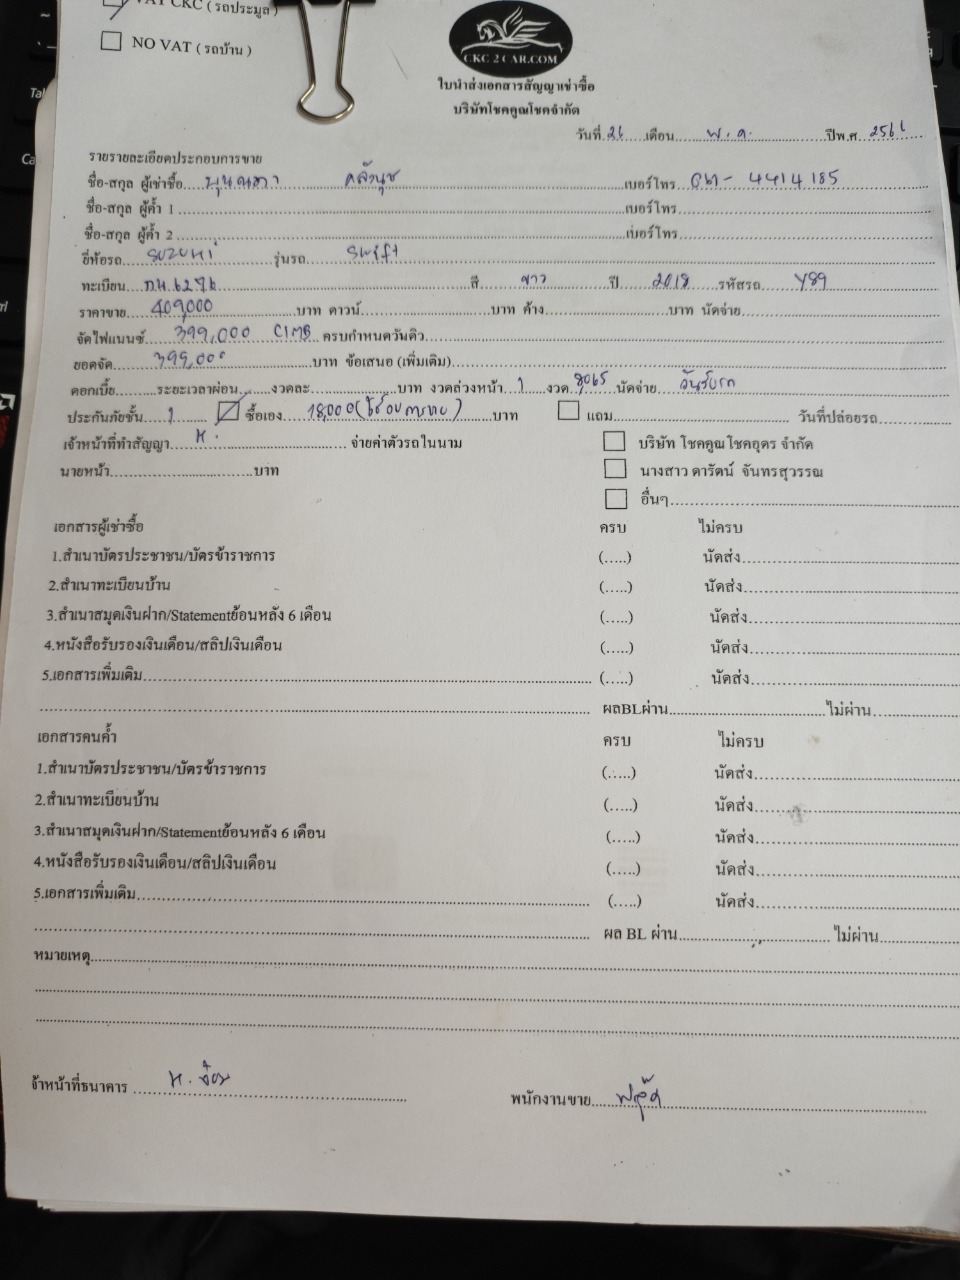 VAT CKC ( รถประมูล )
NO VAT ( รถบ้าน )
CKC 2 CAR.COM
ใบนำส่งเอกสารสัญญาเช่าซื้อ
บริษัทโชคคูณโชคจำกัด
วันที่ 26 เดือน พ.ค. ปีพ.ศ.
รายรายละเอียดประกอบการขาย
ชื่อ-สกุล ผู้เช่าซื้อ เบอร์โทร
ชื่อ-สกุล ผู้ค้ำ 1 เบอร์โทร
ชื่อ-สกุล ผู้ค้ำ 2 เบอร์โทร
ยี่ห้อรถ SUZUKI รุ่นรถ Swift
ทะเบียน สี ขาว ปี 2018 รหัสรถ Y89
ราคาขาย 409,000 บาท ดาวน์ บาท ค้าง บาท นัดจ่าย
จัดไฟแนนซ์ 399,000 CIMB ครบกำหนดวันดิว
ยอดจัด 399,000 บาท ข้อเสนอ (เพิ่มเติม)
ดอกเบี้ย ระยะเวลาผ่อน งวดละ บาท งวดล่วงหน้า 1 งวด 8065 นัดจ่าย วันรับรถ
ประกันภัยชั้น 1 ซื้อเอง 18,000 บาท แถม วันที่ปล่อยรถ
เจ้าหน้าที่ทำสัญญา จ่ายค่าตัวรถในนาม บริษัท โชคคูณโชคอุดร จำกัด
นายหน้า บาท นางสาว ดารัตน์ จันทรสุวรรณ
อื่นๆ
เอกสารผู้เช่าซื้อ ครบ ไม่ครบ
1.สำเนาบัตรประชาชน/บัตรข้าราชการ (.....) นัดส่ง
2.สำเนาทะเบียนบ้าน (.....) นัดส่ง
3.สำเนาสมุดเงินฝาก/Statementย้อนหลัง 6 เดือน (.....) นัดส่ง
4.หนังสือรับรองเงินเดือน/สลิปเงินเดือน (.....) นัดส่ง
5.เอกสารเพิ่มเติม (.....) นัดส่ง
ผลBLผ่าน ไม่ผ่าน
เอกสารคนค้ำ ครบ ไม่ครบ
1.สำเนาบัตรประชาชน/บัตรข้าราชการ (.....) นัดส่ง
2.สำเนาทะเบียนบ้าน (.....) นัดส่ง
3.สำเนาสมุดเงินฝาก/Statementย้อนหลัง 6 เดือน (.....) นัดส่ง
4.หนังสือรับรองเงินเดือน/สลิปเงินเดือน (.....) นัดส่ง
5.เอกสารเพิ่มเติม (.....) นัดส่ง
ผล BL ผ่าน ไม่ผ่าน
หมายเหตุ
จ้าหน้าที่ธนาคาร
พนักงานขาย